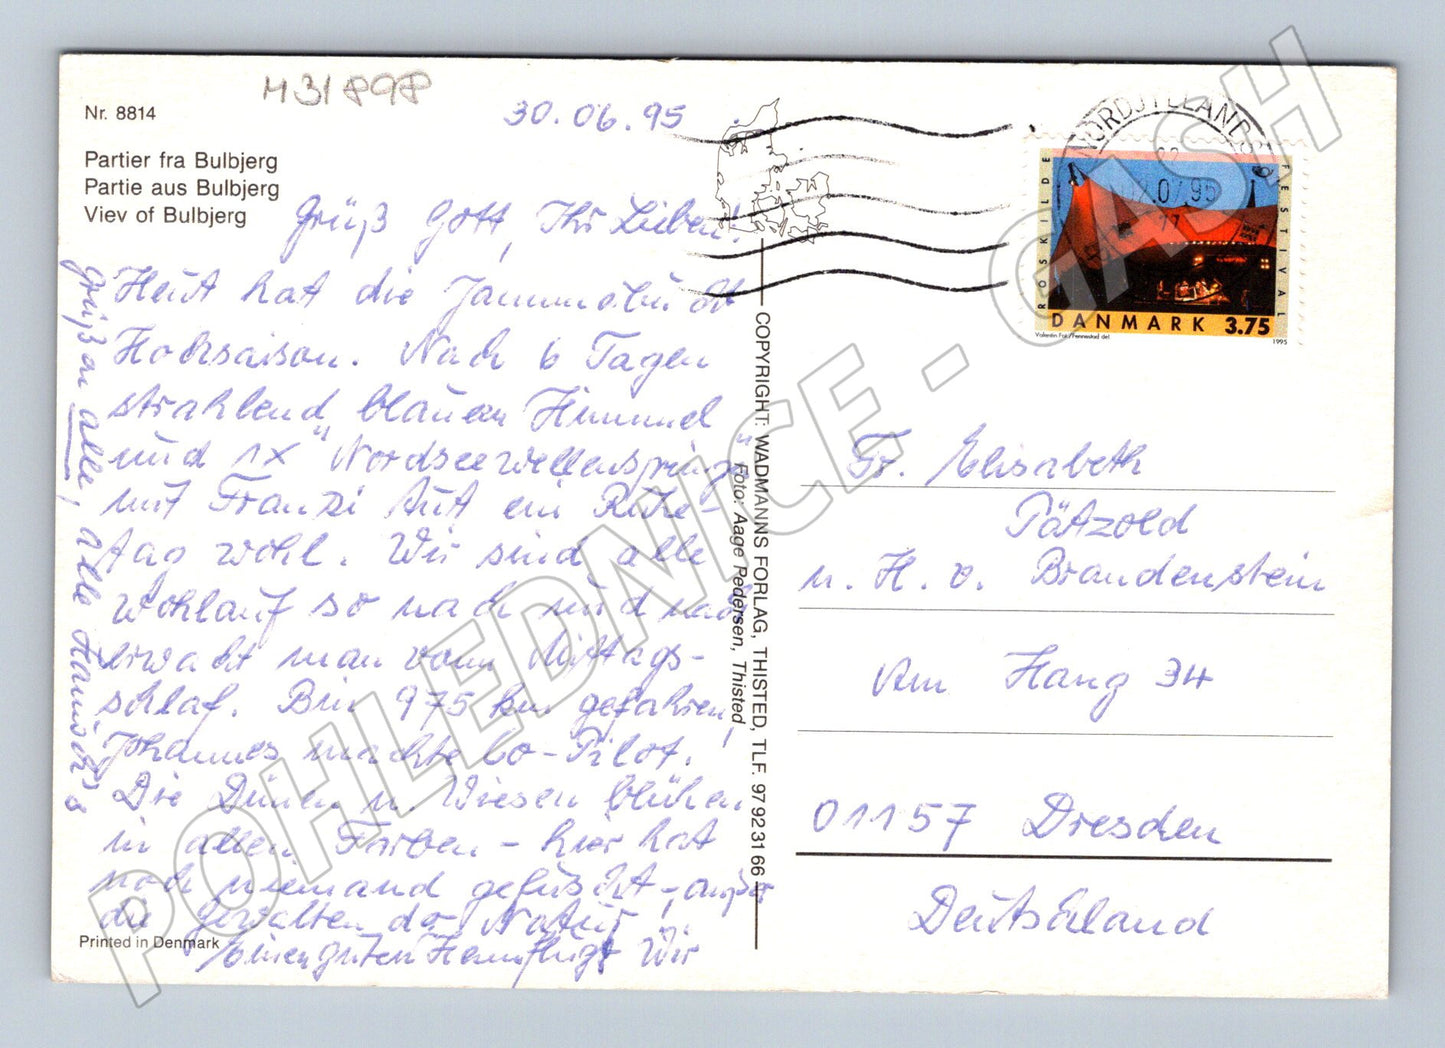 M31898
Nr. 8814
30.06.95
Partier fra Bulbjerg
Partie aus Bulbjerg
Viev of Bulbjerg
Grüß Gott, Ihr Lieben!
Heut hat die
Hochsaison. Nach 6 Tagen
strahlend blauem Himmel
und 1x "Nordseewellenspringen"
mit Franzi tut ein Ruhe-
tag wohl. Wir sind alle
wohlauf so nach und nach
erwacht man vom Mittags-
schlaf. Bin 975 km gefahren,
Johannes machte Co-Pilot.
Die Dünen u. Wiesen blühen
in allen Farben - hier hat
noch niemand gefuscht, außer
die Gewalten der Natur
Einen guten Heimflug! Wir
grüßen alle, alle
Printed in Denmark
COPYRIGHT: WADMANNS FORLAG, THISTED, TLF. 97 92 31 66
Foto: Aage Pedersen, Thisted
NORDJYLLANDS
02.07.95
ROSKILDE
FESTIVAL
DANMARK 3.75
Valentin Foi/Fennestad del
1995
Fr. Elisabeth
Pätzold
u. H. v. Brandenstein
Am Hang 34
01157 Dresden
Deutschland
POHLEDNICE - GASH